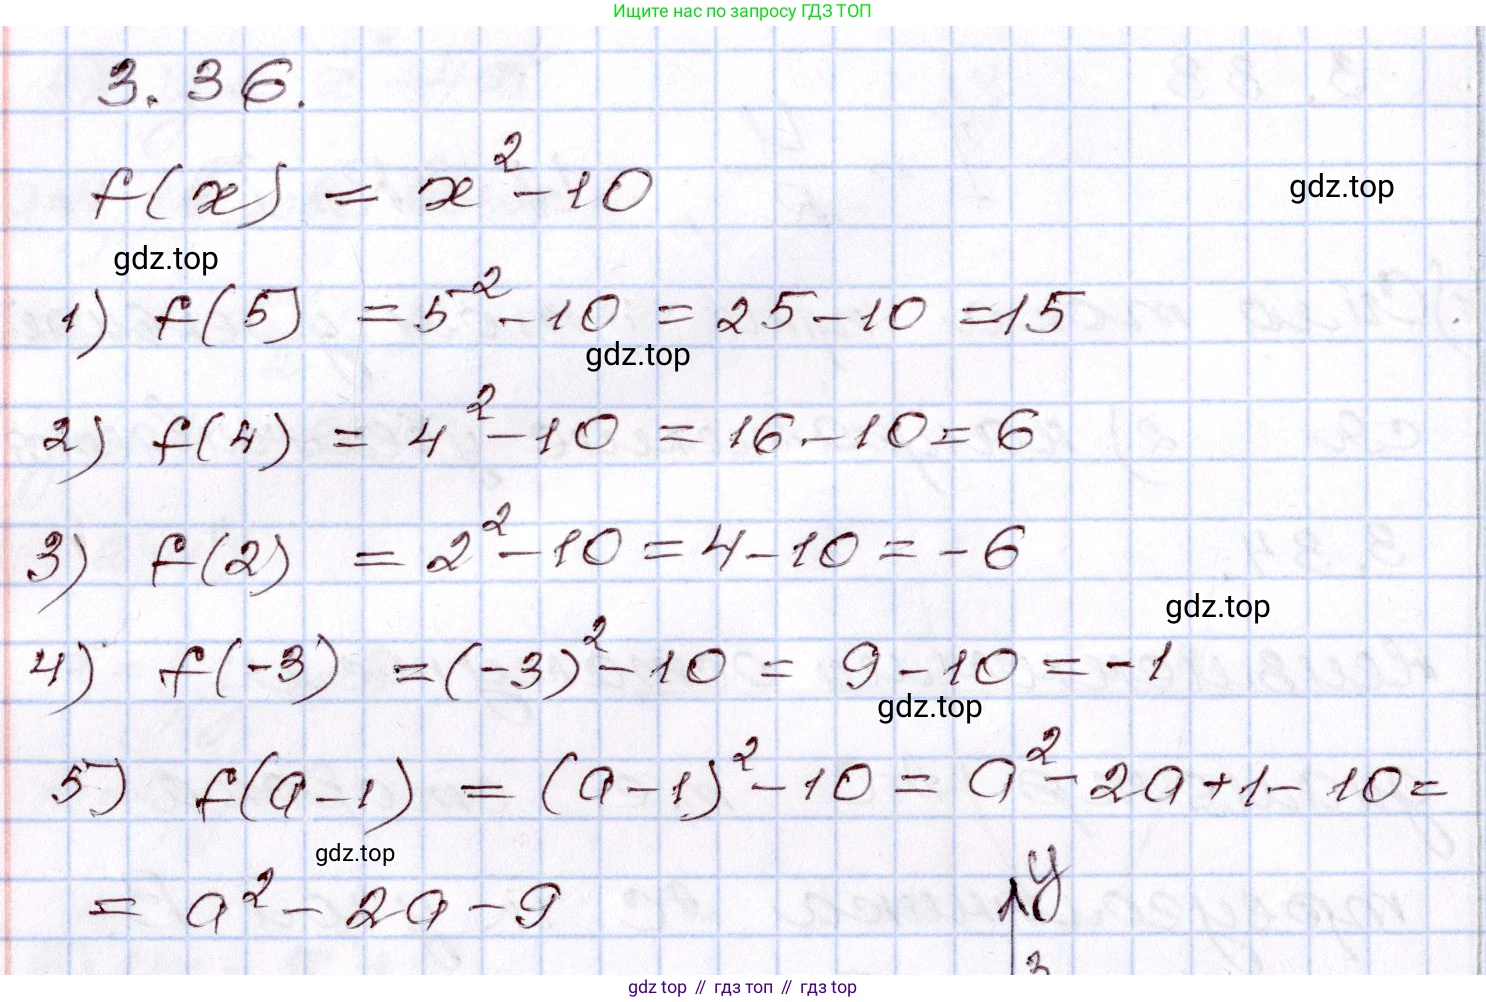 Ищите нас по запросу ГДЗ ТОП
3.36.
f(x) = x² - 10
gdz.top
gdz.top
1) f(5) = 5² - 10 = 25 - 10 = 15
gdz.top
2) f(4) = 4² - 10 = 16 - 10 = 6
3) f(2) = 2² - 10 = 4 - 10 = -6
gdz.top
4) f(-3) = (-3)² - 10 = 9 - 10 = -1
gdz.top
5) f(a-1) = (a-1)² - 10 = a² - 2a + 1 - 10 =
gdz.top
= a² - 2a - 9
y
3
gdz top // гдз топ // гдз top